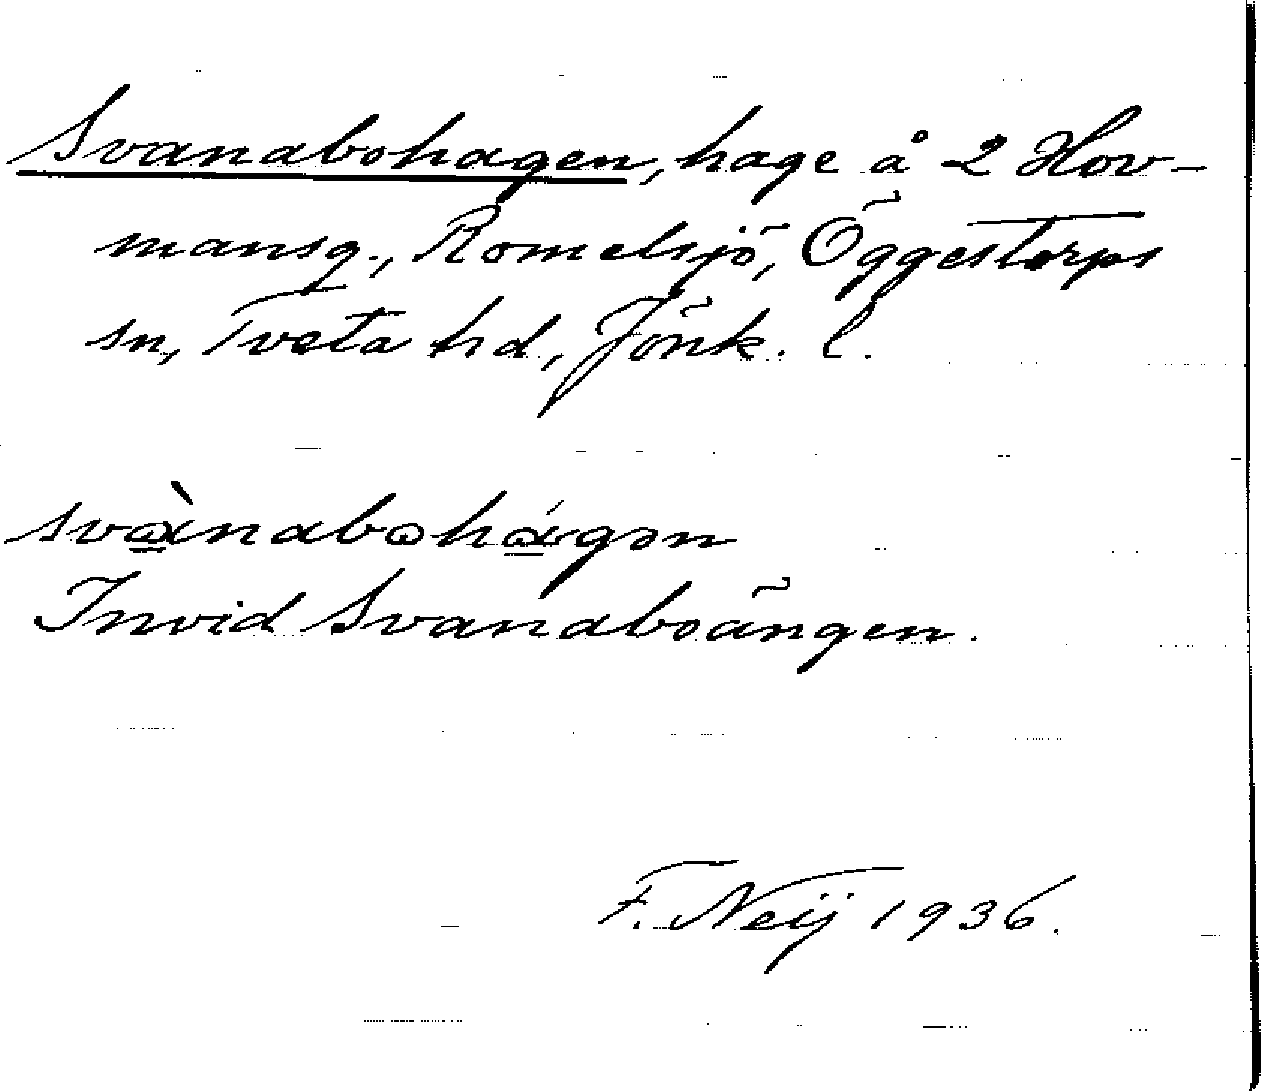 Svanabohagen, hage å 2 Hov-
mansg., Romelsjö, Öggestorps
sn, Tveta hd, Jönk. l.
svànabohágən
Invid Svanaboängen.
F. Neij 1936.